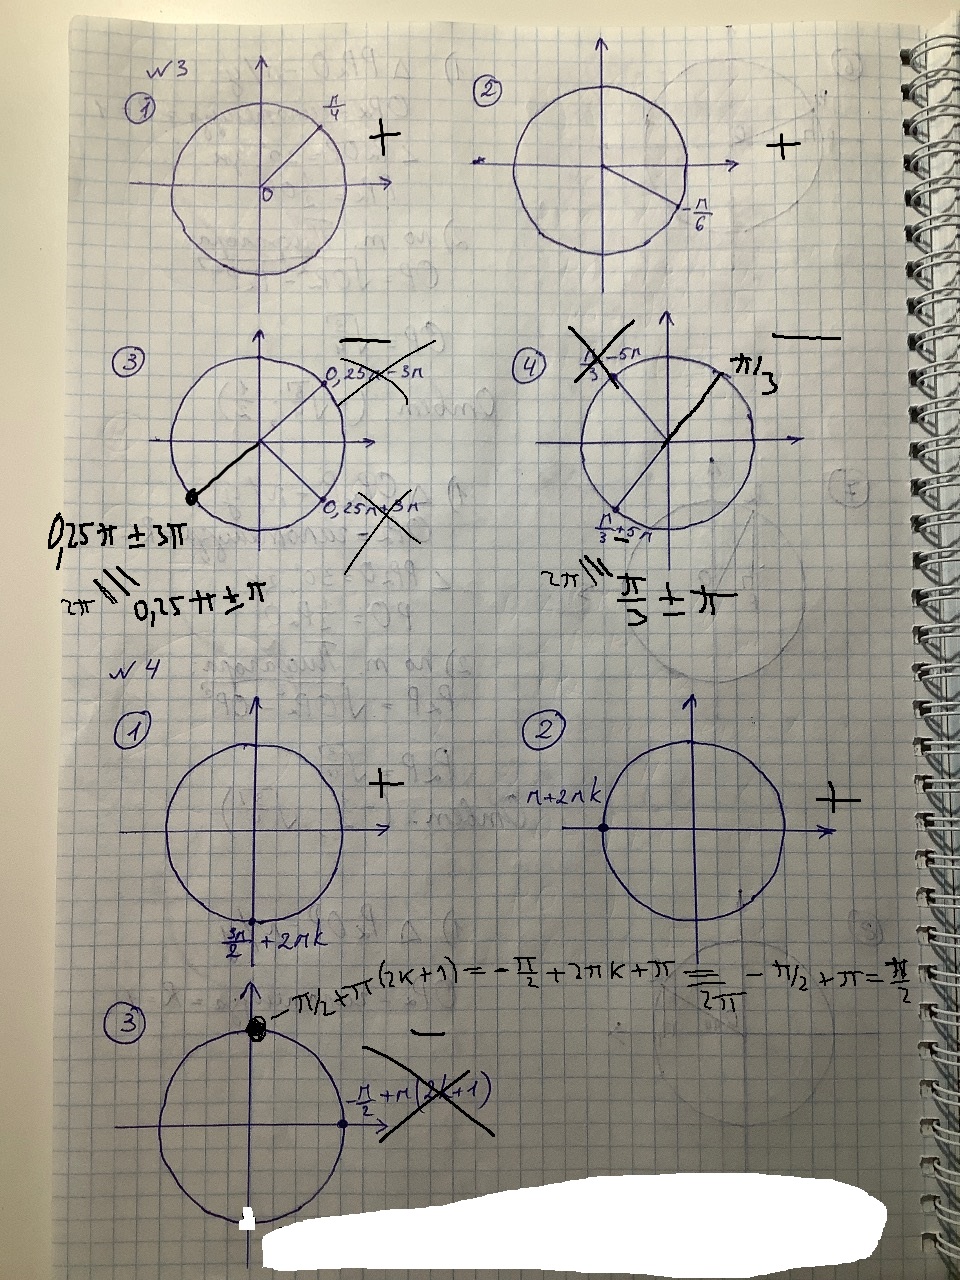 N3
① π/4 +
0
② -π/6 +
③ 0,25π-3π —
0,25π+3π
0,25π ± 3π
2π /// 0,25π ± π
④ π/3-5π —
π/3
π/3+5π
2π /// π/3 ± π
N4
① +
3π/2 + 2πk
② π+2πk +
③ -π/2+π(2k+1) = -π/2 + 2πk + π ≡ 2π -π/2 + π = π/2
—
-π/2+π(2k+1)